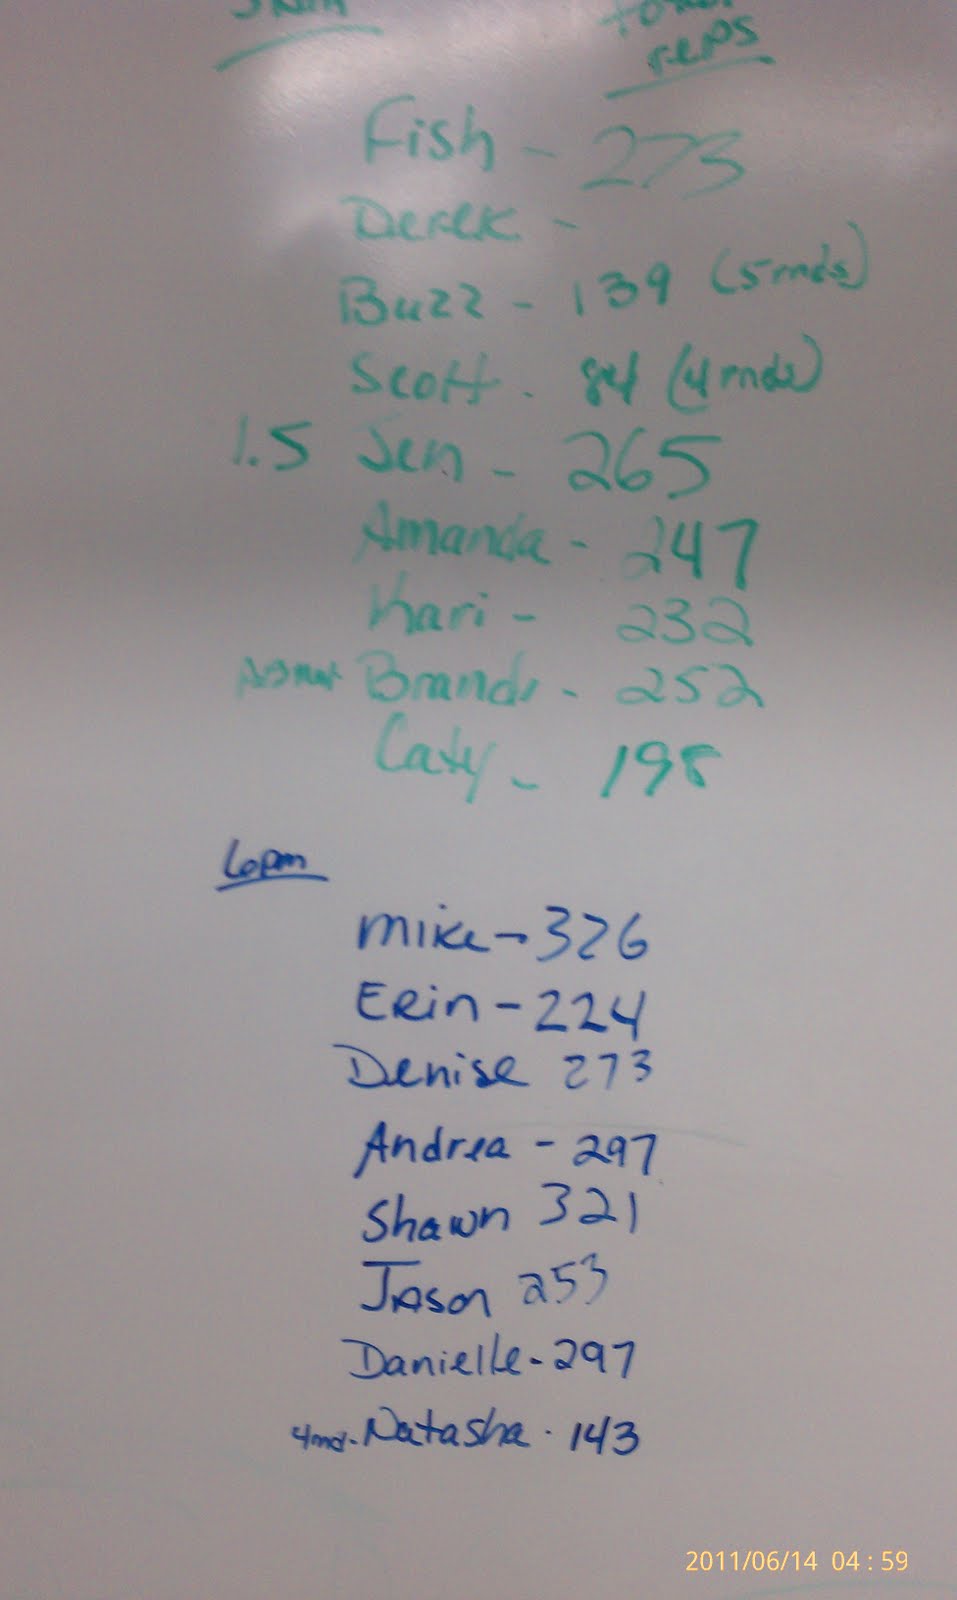 total
reps
Fish - 273
Derek -
Buzz - 139 (5 rnds)
Scott - 84 (4 rnds)
1.5 Jen - 265
Amanda - 247
Kari - 232
Brandi - 252
Caty - 198
6pm
Mike - 326
Erin - 224
Denise 273
Andrea - 297
Shawn 321
Jason 253
Danielle - 297
4rnd - Natasha - 143
2011/06/14 04:59